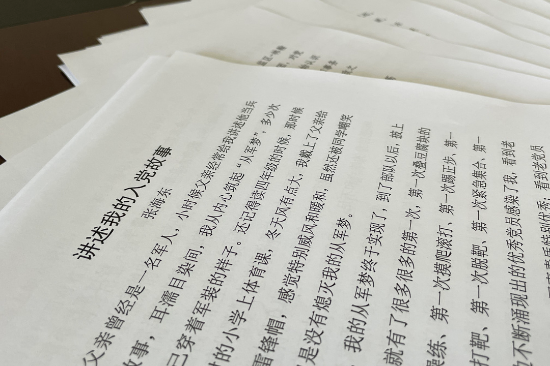 讲述我的入党故事
张海东
父亲曾经是一名军人，小时候父亲经常给我讲述他当兵
故事，耳濡目染间，我从内心筑起“从军梦”，多少次
己穿着军装的样子。还记得读四年级的时候，那时候
村的小学上体育课，冬天风有点大，我戴上了父亲给
雷锋帽，感觉特别威风和暖和，虽然还被同学嘲笑
是没有熄灭我的从军梦。
，我的从军梦终于实现了，到了部队以后，披上
就有了很多很多的第一次，第一次叠豆腐块的
操练、第一次摸爬滚打、第一次踢正步、第一
打靶、第一次脱靶、第一次紧急集合、第一
不断涌现出的优秀党员感染了我，看到老
看到老党员